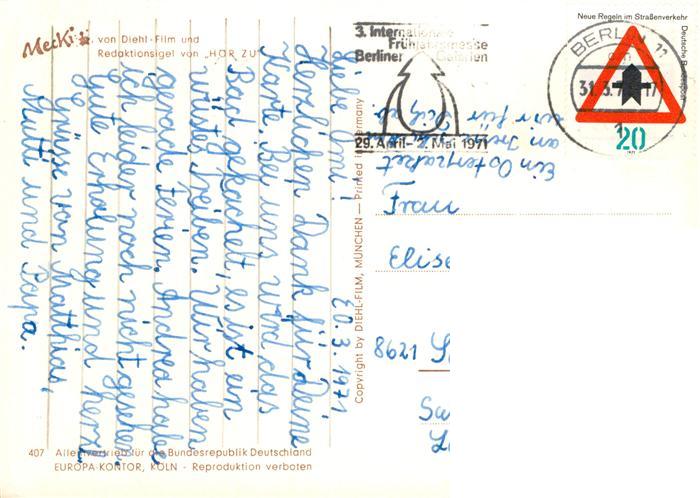 Mecki von Diehl-Film und
Redaktionsigel von „HÖR ZU"
3. Internationale
Frühjahrsmesse
Berliner Galerien
29. April-2. Mai 1971
Neue Regeln im Straßenverkehr
Deutsche Bundespost
20
BERLIN 11
31.3.71-17
30.3.1971
Liebe Omi!
Herzlichen Dank für Deine
Karte. Bei uns wird das
Bad gekachelt, es ist ein
wüstes Treiben. Wir haben
gerade Ferien. Andrea habe
ich leider noch nicht gesehen.
Gute Erholung und herzl.
Grüsse von Matthias,
Mutti und Papa.
Ein Osterpaket
wir für
ab.
Frau
Elise
8621
Copyright by DIEHL-FILM, MÜNCHEN — Printed in Germany
407 Alleinvertrieb für die Bundesrepublik Deutschland
EUROPA-KONTOR, KÖLN - Reproduktion verboten